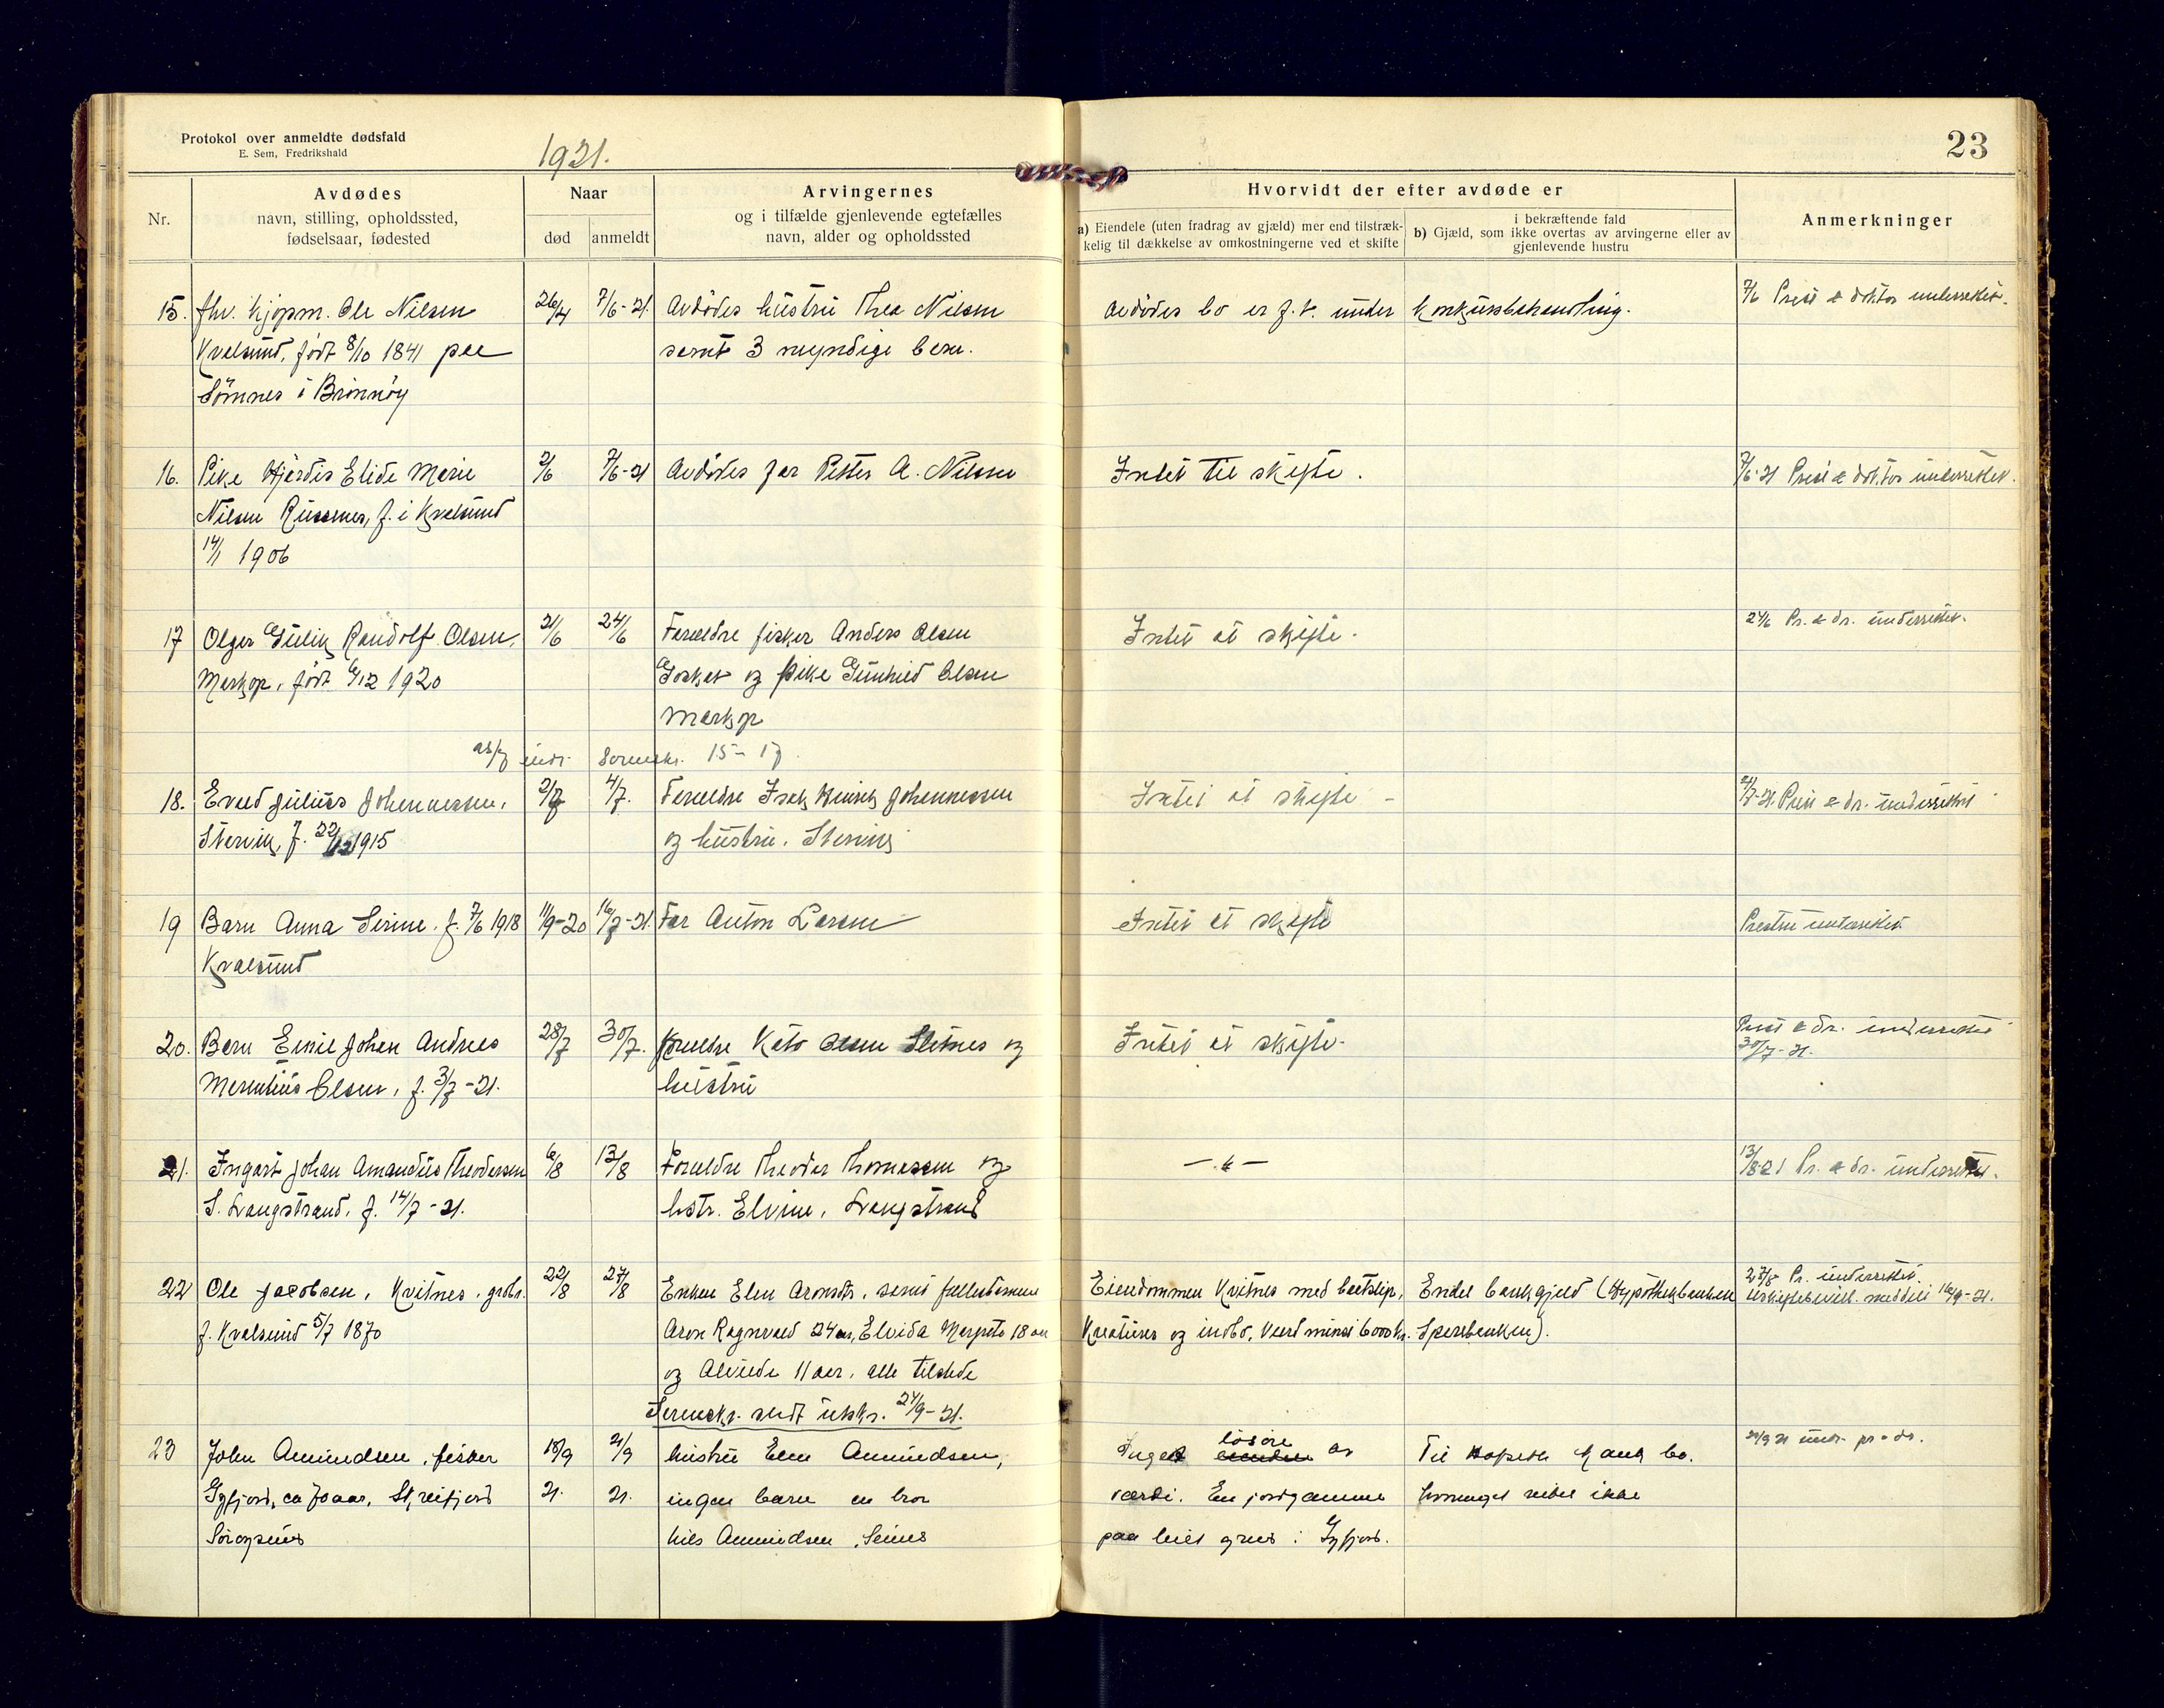 Protokol over anmeldte dødsfald
E. Sem, Fredrikshald
1921.
23
Nr.
Avdødes
navn, stilling, opholdssted,
fødselsaar, fødested
Naar
død
anmeldt
Arvingernes
og i tilfælde gjenlevende egtefælles
navn, alder og opholdssted
Hvorvidt der efter avdøde er
a) Eiendele (uten fradrag av gjæld) mer end tilstræk-
kelig til dækkelse av omkostningerne ved et skifte
i bekræftende fald
b) Gjæld, som ikke overtas av arvingerne eller av
gjenlevende hustru
Anmerkninger
15. fhv. kjøpm. Ole Nilsen 26/4 7/6-21. Avdødes hustru Thea Nilsen Avdødes bo er f. t. under konkursbehandling. 7/6 Prest & doktor underrettet.
Kvalsund, født 8/10 1841 paa samt 3 myndige barn.
Sömnes i Brönnöy
16. Pike Hjørdis Elide Marie 2/6 7/6-21 Avdødes far Petter A. Nilsen Intet til skifte. 7/6-21 Prest & doktor underrettet.
Nilsen Russenes, f. i Kvalsund
14/1 1906
17 Olger Gulik Randolf Olsen, 21/6 24/6 Foreldre fisker Anders Olsen Intet at skifte. 24/6 Pr. & dr. underrettet.
Markop, født 6/12 1920 og pike Gunhild Olsen
Markop
undr. Sorenskr. 15-17.
18. Julius Johannessen, 2/7 4/7. Foreldre Isak Henrik Johannessen Intet at skifte - Prest & dr. underrettet
Stervik, f. 22/ 1915 og hustru. Stervik
19 Barn Anna Serine. f. 7/6 1918 11/9-20 16/7-21. Far Anton Larsen Intet at skifte Presten underrettet.
Kvalsund
20. Barn Emil Johan Andreas 28/7 30/7. Foreldre Kato Olsen og Intet at skifte. Prest & dr. underrettet
Olsen, f. 3/7-21. hustru 30/7-21.
21. Ingart Johan Amandus Theodorsen 6/8 13/8 Foreldre Theodor Thomassen og 13/8-21 Pr. & dr. underrettet.
S. Langstrand, f. 14/7-21. hstr. Elvine, Langstrand
22 Ole Jacobsen, Kvitnes. grbr. 22/8 27/8 Enken Elen samt fellesbarnene Eiendommen Kvitnes med Endel bankgjeld (Hypothekbanken 27/8 Pr. underrettet
f. Kvalsund 5/7 1870 Aron Ragnvald 24 aar, Elvida Margrete 18 aar Kreaturer og indbo, værd minst 6000 kr. Sparebanken). meddelt 16/9-21.
og 11 aar. alle tilstede
Sorenskr. sendt utskr. 24/9-21.
23 John Amundsen, fisker 18/9 21/9 hustru Elen Amundsen, Inget løsøre av Til bo.
ca 70 aar, 21. 21. ingen barn en bror værdi. En jordgamme ikke
Nils Amundsen, paa leiet grund i